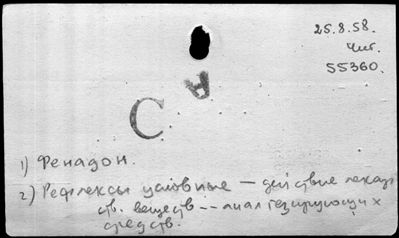 25.8.58.
Чит.
55360.
А
С
1) Фенадон.
2) Рефлексы условные — действие лекар
ств. веществ -- аналгезирующих
средств.